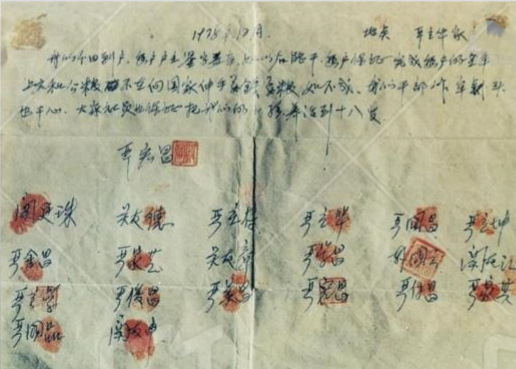 1978年12月 地点 严立华家
我们分田到户,每户户主签字盖章,如以后能干,每户保证完成每户的全年
上交和公粮,不在向国家伸手要钱要粮,如不成,我们干部作牢刹头
也干心,大家社员也保证把我们的小孩养活到十八岁
严宏昌
关廷珠 关友德 严立付 严立华 严国昌 严立坤
严金昌 严家芝 关友章 严学昌 韩国云 关友江
严立学 严俊昌 严美昌 严宏昌 严付昌 严家其
严国品 关友申